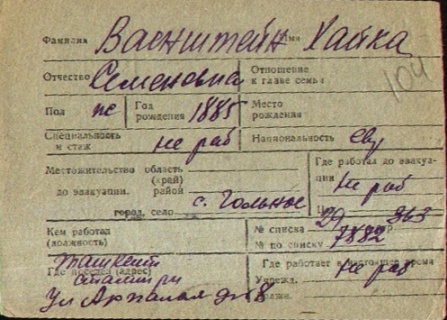 Фамилия Ваенштейн Имя Хайка
104
Отчество Семеновна Отношение к главе семьи
Пол же Год рождения 1885 Место рождения
Специальность и стаж не раб Национальность евр
Местожительство область (край)
до эвакуации. район
город, село с. Гольное
Где работал до эвакуации не раб
Кем работал (должность)
№ списка 29 363
№ по списку 7882
Где поселен (адрес) Ташкент
Сталин рн
Ул
Где работает в настоящее время
Учрежд. не раб
Должн.